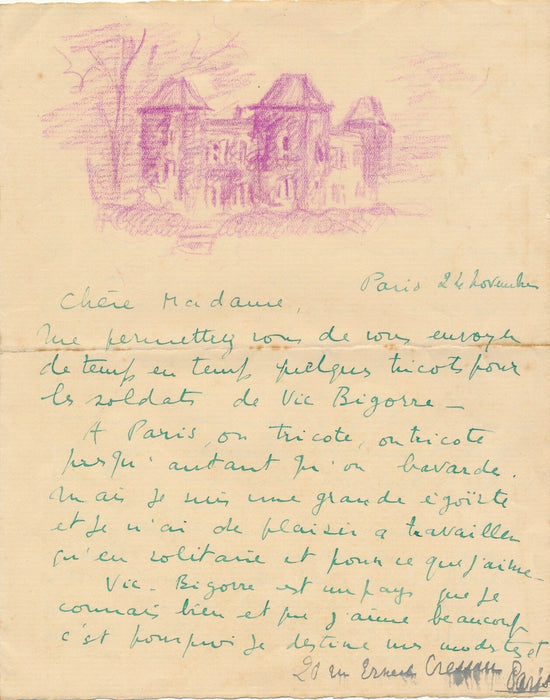 Paris 24 novembre
Chère Madame,
Me permettez vous de vous envoyer
de temps en temps quelques tricots pour
les soldats de Vic Bigorre –
A Paris, on tricote, on tricote
presqu'autant qu'on bavarde.
Mais je suis une grande égoïste
et je n'ai de plaisir a travailler
qu'en solitaire et pour ce que j'aime –
Vic-Bigorre est un pays que je
connais bien et que j'aime beaucoup
c'est pourquoi je destine mes modestes et
20 rue Ernest Cresson Paris